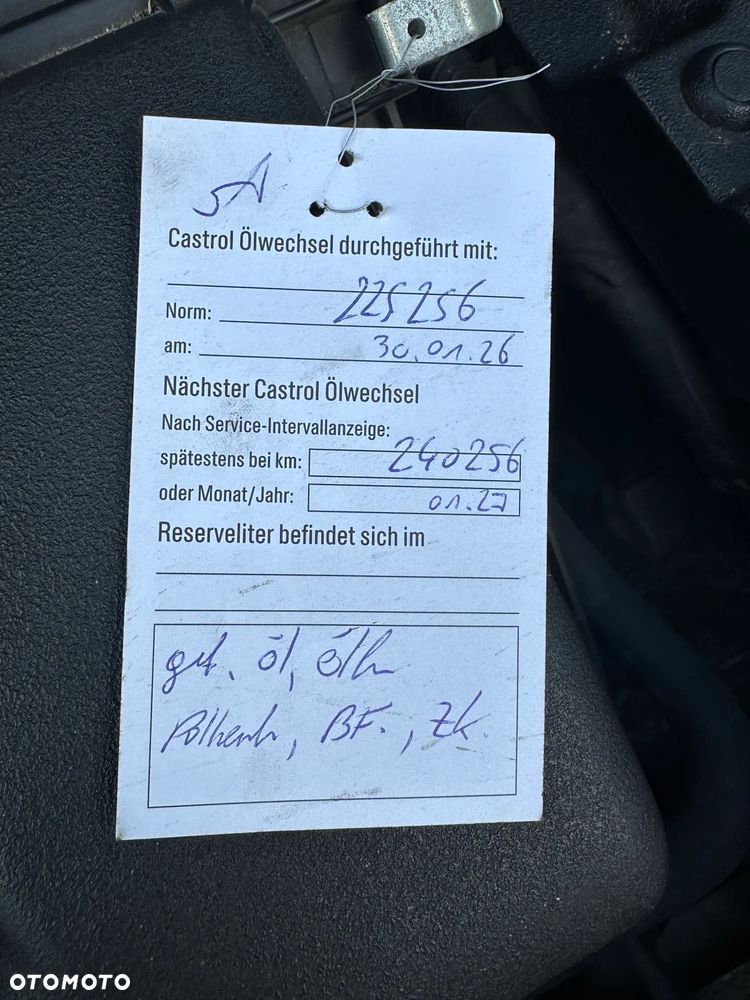 Castrol Ölwechsel durchgeführt mit:
Norm: 225256
am: 30.01.26
Nächster Castrol Ölwechsel
Nach Service-Intervallanzeige:
spätestens bei km: 240256
oder Monat/Jahr: 01.27
Reserveliter befindet sich im
öl,
BF., Zk.
OTOMOTO